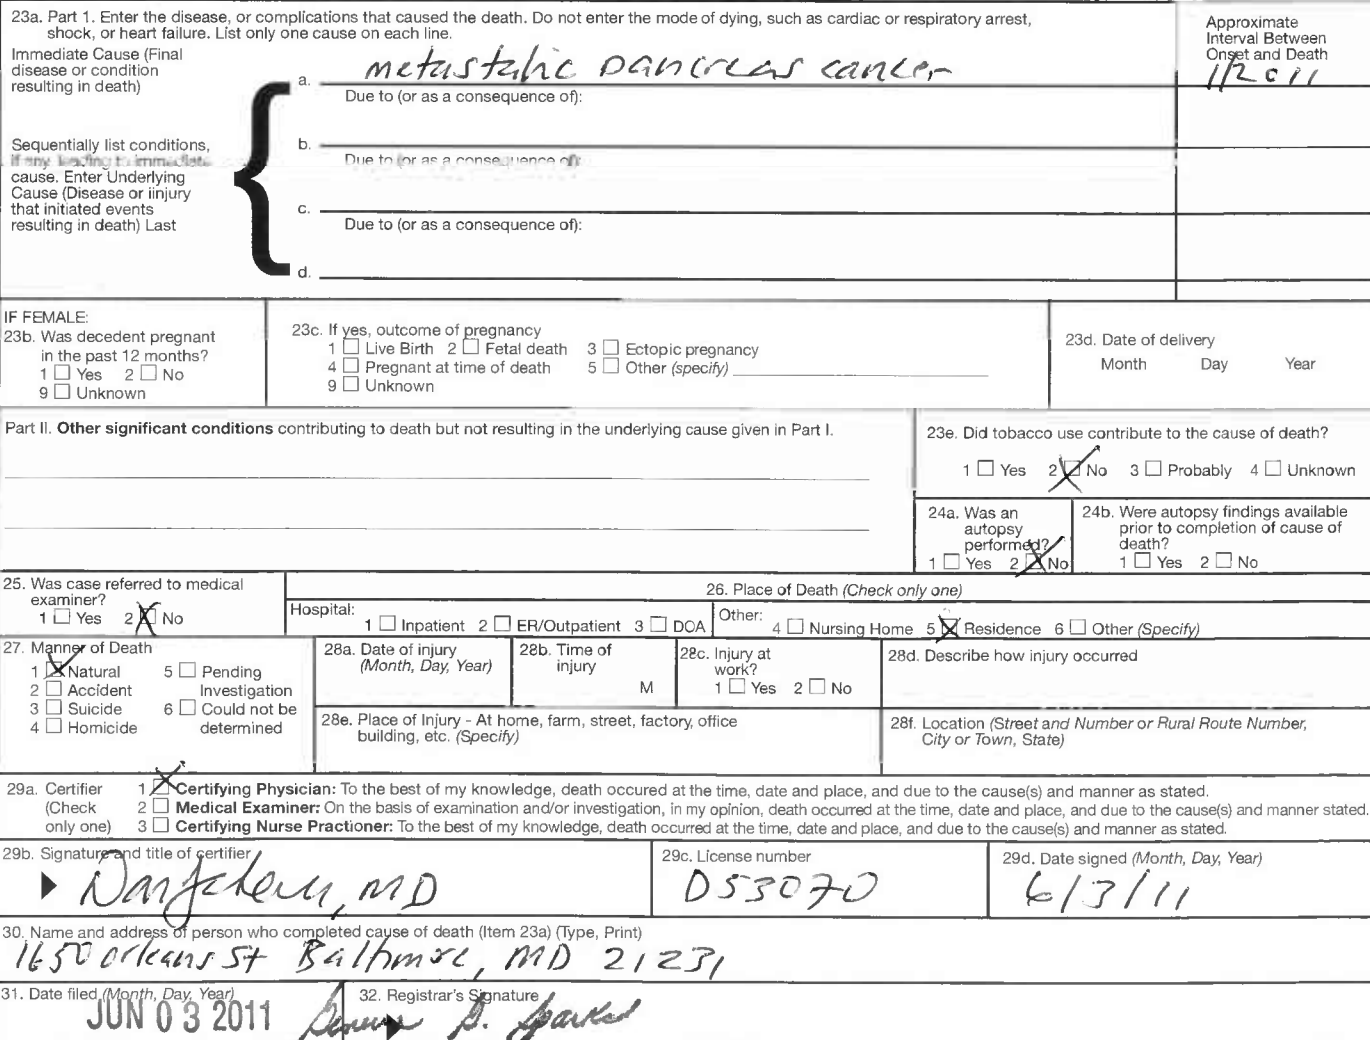 23a. Part 1. Enter the disease, or complications that caused the death. Do not enter the mode of dying, such as cardiac or respiratory arrest,
shock, or heart failure. List only one cause on each line.
Approximate
Interval Between
Onset and Death
Immediate Cause (Final
disease or condition
resulting in death)
a. metastatic pancreas cancer
1/2011
Due to (or as a consequence of):
Sequentially list conditions,
if any leading to immediate
cause. Enter Underlying
Cause (Disease or iinjury
that initiated events
resulting in death) Last
b.
Due to (or as a consequence of):
c.
Due to (or as a consequence of):
d.
IF FEMALE:
23b. Was decedent pregnant
in the past 12 months?
1 ☐ Yes 2 ☐ No
9 ☐ Unknown
23c. If yes, outcome of pregnancy
1 ☐ Live Birth 2 ☐ Fetal death 3 ☐ Ectopic pregnancy
4 ☐ Pregnant at time of death 5 ☐ Other (specify)
9 ☐ Unknown
23d. Date of delivery
Month Day Year
Part II. Other significant conditions contributing to death but not resulting in the underlying cause given in Part I.
23e. Did tobacco use contribute to the cause of death?
1 ☐ Yes 2 ☒ No 3 ☐ Probably 4 ☐ Unknown
24a. Was an
autopsy
performed?
1 ☐ Yes 2 ☒ No
24b. Were autopsy findings available
prior to completion of cause of
death?
1 ☐ Yes 2 ☐ No
25. Was case referred to medical
examiner?
1 ☐ Yes 2 ☒ No
26. Place of Death (Check only one)
Hospital: 1 ☐ Inpatient 2 ☐ ER/Outpatient 3 ☐ DOA
Other: 4 ☐ Nursing Home 5 ☒ Residence 6 ☐ Other (Specify)
27. Manner of Death
1 ☒ Natural 5 ☐ Pending
2 ☐ Accident Investigation
3 ☐ Suicide 6 ☐ Could not be
4 ☐ Homicide determined
28a. Date of injury
(Month, Day, Year)
28b. Time of
injury
M
28c. Injury at
work?
1 ☐ Yes 2 ☐ No
28d. Describe how injury occurred
28e. Place of Injury - At home, farm, street, factory, office
building, etc. (Specify)
28f. Location (Street and Number or Rural Route Number,
City or Town, State)
29a. Certifier
(Check
only one)
1 ☒ Certifying Physician: To the best of my knowledge, death occured at the time, date and place, and due to the cause(s) and manner as stated.
2 ☐ Medical Examiner: On the basis of examination and/or investigation, in my opinion, death occurred at the time, date and place, and due to the cause(s) and manner stated.
3 ☐ Certifying Nurse Practioner: To the best of my knowledge, death occurred at the time, date and place, and due to the cause(s) and manner as stated.
29b. Signature and title of certifier
MD
29c. License number
D53070
29d. Date signed (Month, Day, Year)
6/3/11
30. Name and address of person who completed cause of death (Item 23a) (Type, Print)
1650 Orleans St Baltimore, MD 21231
31. Date filed (Month, Day, Year)
JUN 03 2011
32. Registrar's Signature
B. Sparks